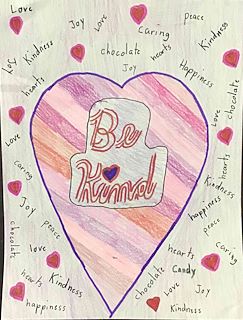 Love
Joy
Love
Caring
peace
Kindness
chocolate
hearts
Kindness
Joy
Joy
Happiness
hearts
chocolate
Be
Kind
love
love
hearts
caring
Kindness
Joy
happiness
peace
peace
chocolate
love
hearts
caring
hearts
Kindness
Candy
chocolate
Love
Joy
happiness
Kindness